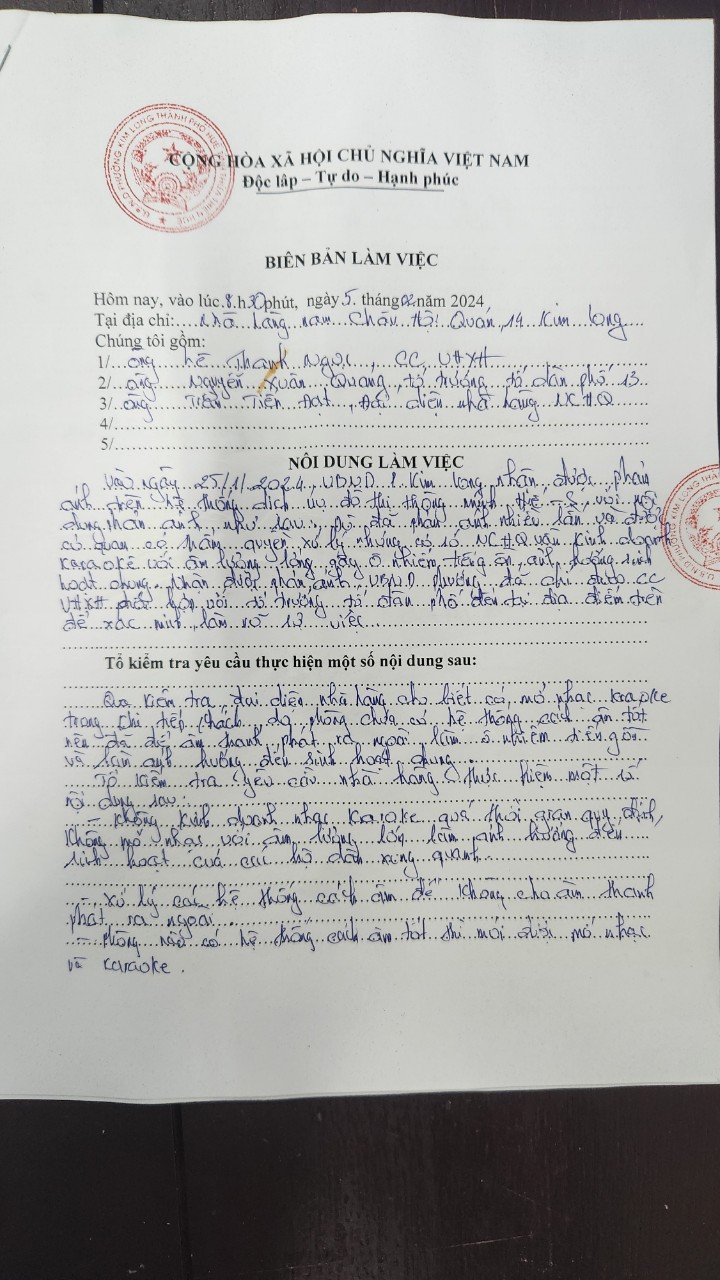 CỘNG HÒA XÃ HỘI CHỦ NGHĨA VIỆT NAM
Độc lập – Tự do – Hạnh phúc
BIÊN BẢN LÀM VIỆC
Hôm nay, vào lúc 8.h.30phút, ngày 5. tháng 02 năm 2024
Tại địa chỉ: Nhà hàng nam Châu Hội Quán, 14 Kim Long
Chúng tôi gồm:
1/ ông Lê Thanh Ngọc, CC VHXH
2/ ông Nguyễn Xuân Quang, tổ trưởng tổ dân phố 13
3/ ông Trần Tiến Đạt, Đại diện nhà hàng NCHQ
4/
5/
NỘI DUNG LÀM VIỆC
Vào ngày 25/1/2024, UBND P. Kim Long nhận được phản
ánh trên hệ thống dịch vụ đô thị thông minh Huế-S, với nội
dung phản ánh như sau: đã phản ánh nhiều lần và được
cơ quan có thẩm quyền xử lý nhưng cơ sở NCHQ vẫn kinh doanh
Karaoke với âm lượng lớn, gây ô nhiễm tiếng ồn, ảnh hưởng sinh
hoạt chung. Nhận được phản ánh, UBND phường đã chỉ đạo CC
VHXH phối hợp với tổ trưởng tổ dân phố đến tại địa điểm trên
để xác minh, làm rõ sự việc
Tổ kiểm tra yêu cầu thực hiện một số nội dung sau:
Qua kiểm tra, đại diện nhà hàng cho biết có mở nhạc karaoke
trong khi tiếp khách, do phòng chưa có hệ thống cách âm tốt
nên đã để âm thanh phát ra ngoài làm ô nhiễm tiếng ồn
và làm ảnh hưởng đến sinh hoạt chung
Tổ kiểm tra yêu cầu nhà hàng thực hiện một số
nội dung sau:
- Không kinh doanh nhạc Karaoke quá thời gian quy định,
không mở nhạc với âm lượng lớn làm ảnh hưởng đến
sinh hoạt của các hộ dân xung quanh
- Xử lý các hệ thống cách âm để không cho âm thanh
phát ra ngoài
- Phòng nào có hệ thống cách âm tốt thì mới được mở nhạc
và Karaoke.